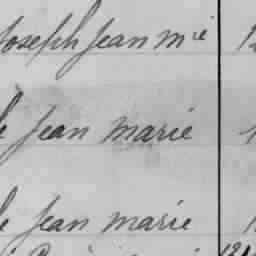 Joseph Jean Mie
Jean Marie
Jean Marie